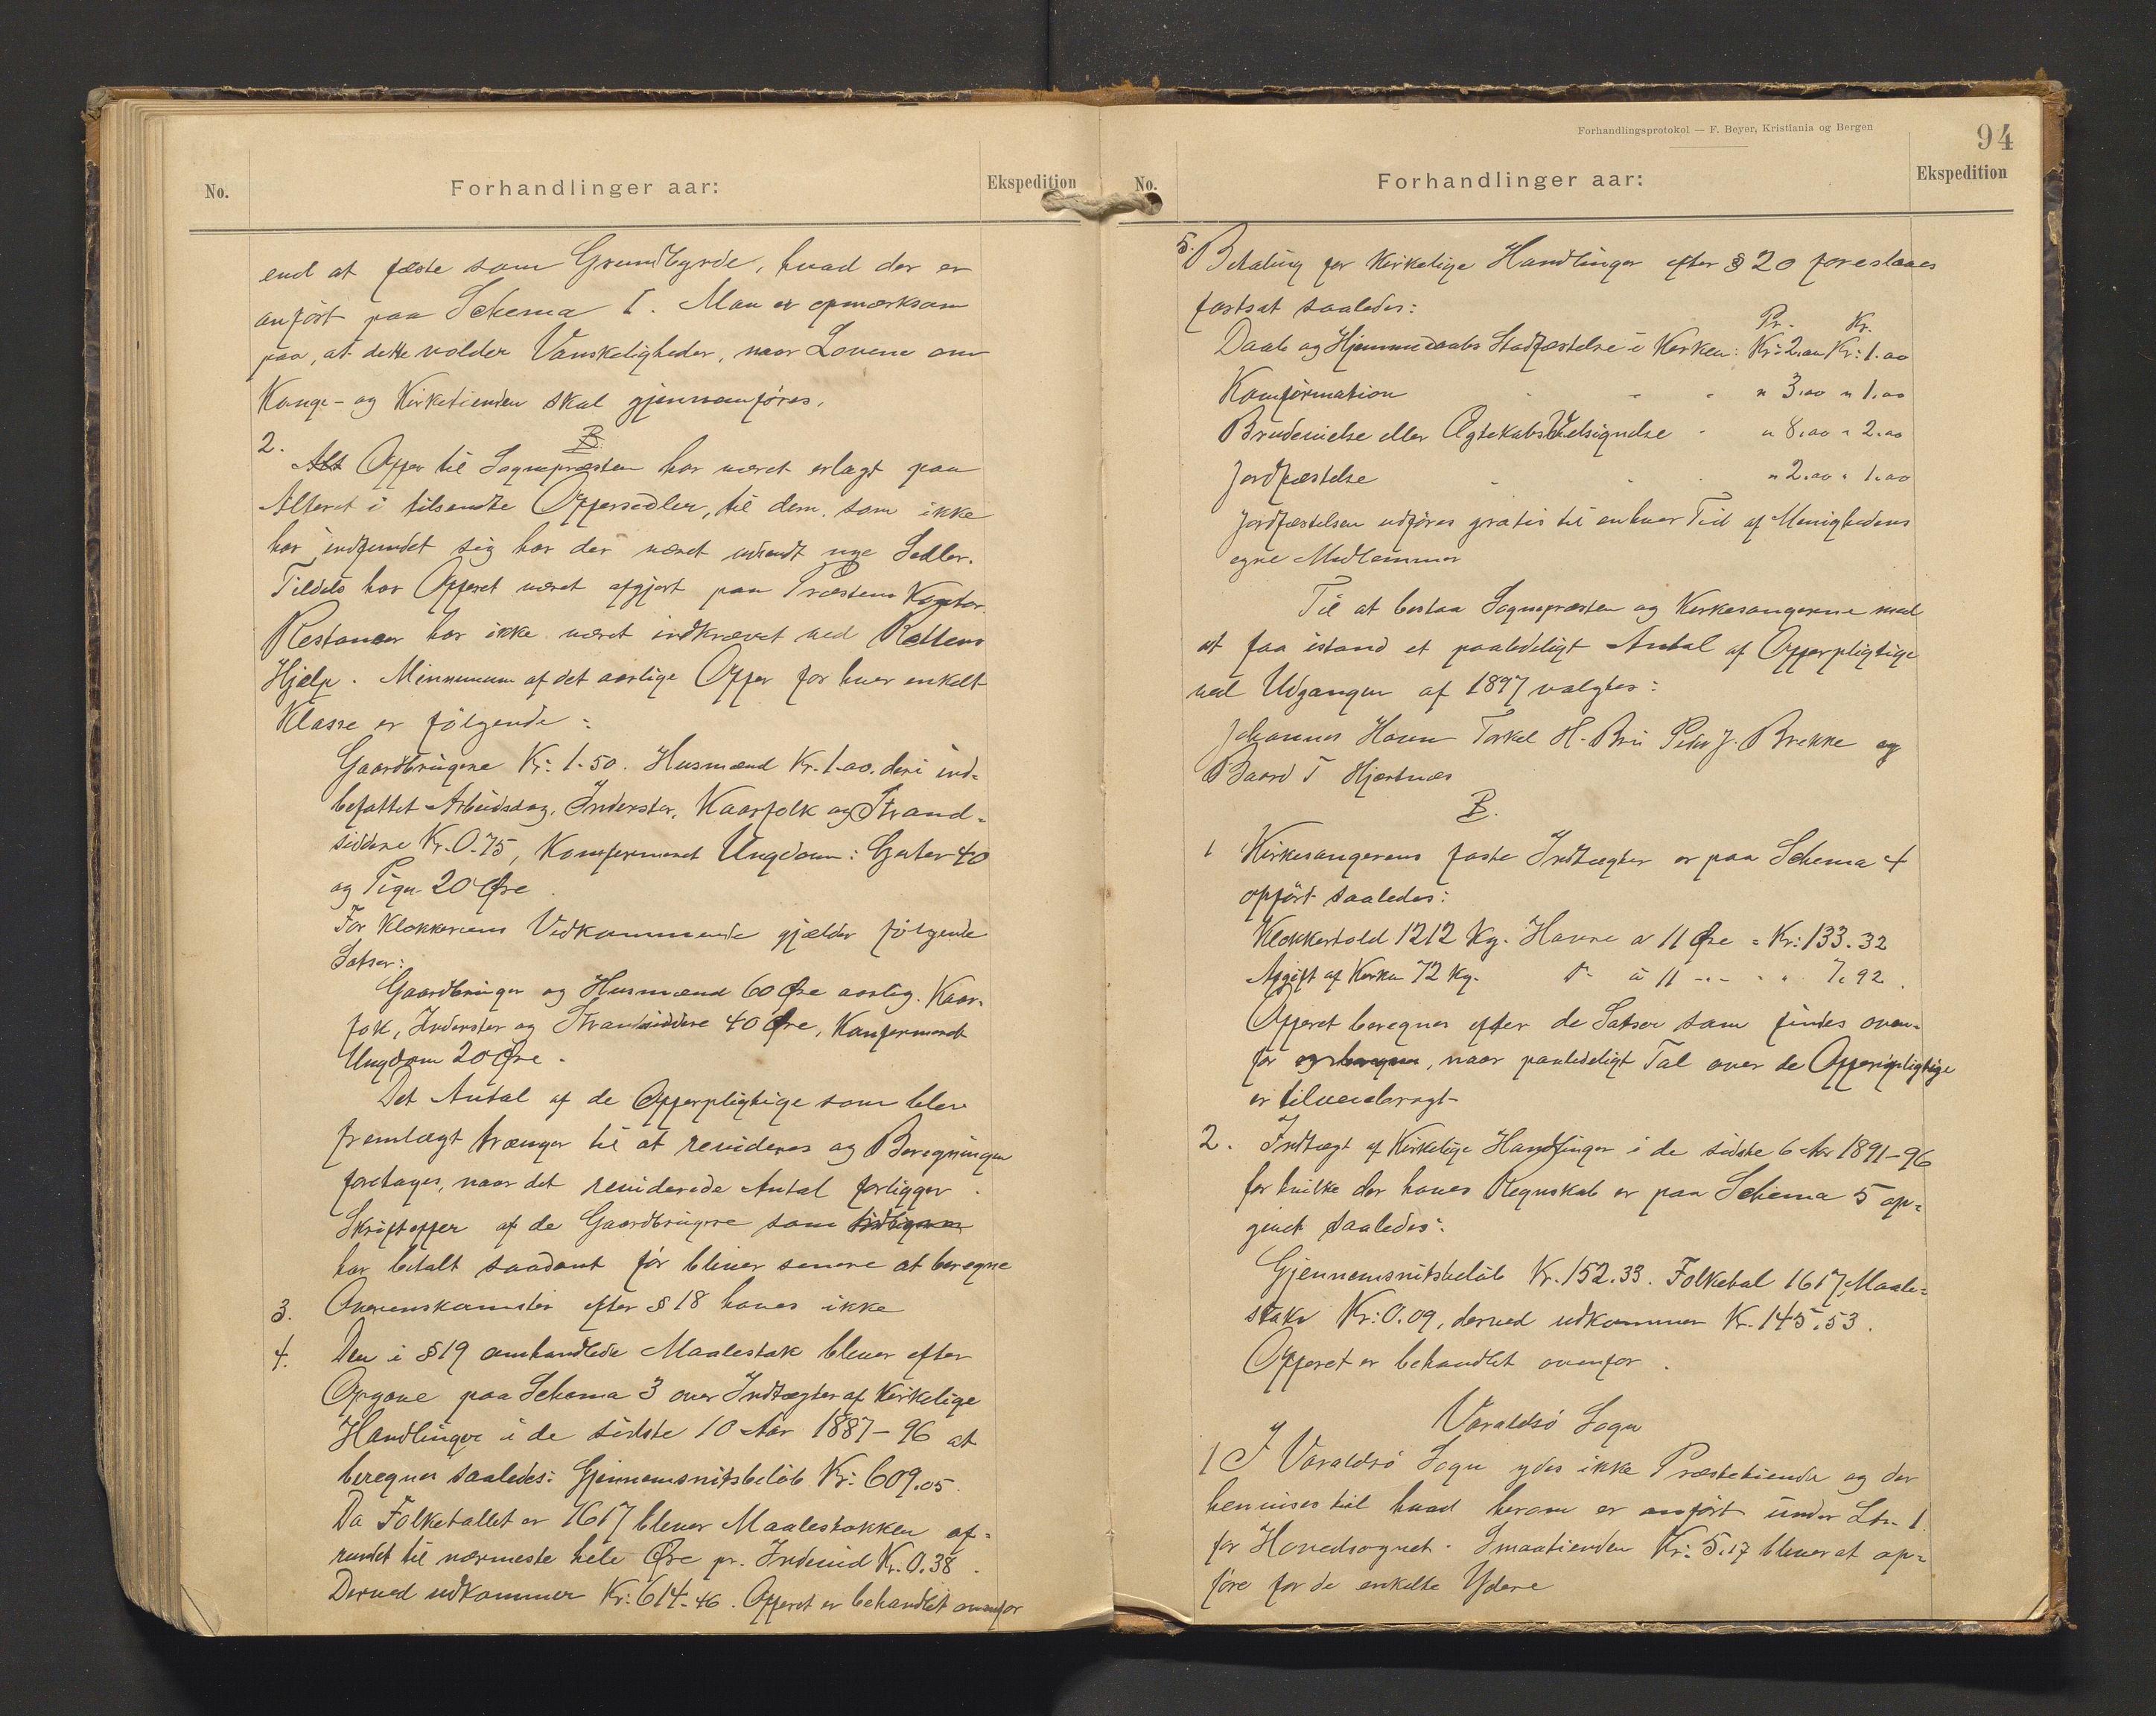 No.
Forhandlinger aar:
Ekspedition
end at fæste som Grundbyrde, hvad der er
anført paa Schema 1. Man er opmærksom
paa, at dette volder Vanskeligheder, naar Lovene om
Konge- og Kirketienden skal gjennemføres.
B.
2. Alt Offer til Sognepræsten har været erlagt paa
Alteret i tilsendte Offersedler, til dem, som ikke
har indfundet sig har der været udsendt nye Sedler.
Tildels har Offeret været afgjort paa Præstens Kontor.
Restancer har ikke været indkrævet ved Rettens
Hjælp. Minnumum af det aarlige Offer for hver enkelt
Klasse er følgende:
Gaardbrugere Kr: 1-50. Husmænd Kr. 1.00. deri ind-
befattet Arbeidsdag. Inderster, Kaarfolk og Strand-
siddere Kr. 0.75, Konfirmeret Ungdom: Gutter 40
og Piger 20 Øre.
For Klokkerens Vedkommende gjælder følgende
Satser:
Gaardbruger og Husmænd 60 Øre aarlig. Kaar-
folk, Inderster og Strandsiddere 40 Øre, Konfermeret
Ungdom 20 Øre.
Det Antal af de Offerpligtige som blev
fremlagt trænger til at revideres og Beregningen
foretages, naar det reviderede Antal forligger.
Skriftoffer af de Gaardbrugere som
har betalt saadant før bliver senere at beregne
3. Overenskomster efter § 18 haves ikke
4. Den i § 19 omhandlede Maalestok bliver efter
Opgave paa Schema 3 over Indtægter af Kirkelige
Handlinger i de sidste 10 Aar 1887-96 at
beregne saaledes: Gjennemsnitsbeløb Kr: 609.05.
Da Folketallet er 1617 bliver Maalestokken af-
rundet til nærmeste hele Øre pr. Individ Kr. 0.38.
Derved udkommer Kr: 614-46. Offeret er behandlet ovenfor
Forhandlingsprotokol — F. Beyer, Kristiania og Bergen
94
No.
Forhandlinger aar:
Ekspedition
5. Betaling for Kirkelige Handlinger efter § 20 foreslaaes
fastsat saaledes:
Pr. Kr.
Daab og Hjemmedaabs Stadfæstelse i Kirken: Kr: 2.00 Kr: 1.00
Konfirmation " 3.00 " 1.00
Brudevielse eller Ægtekabs Velsignelse - " 8.00 " 2.00
Jordfæstelse " 2.00 " 1.00
Jordfæstelsen udføres gratis til enhver Tid af Menighedens
egne Medlemmer
Til at bestaa Sognepræsten og Kirkesangerne med
at faa istand et paalideligt Antal af Offerpligtige
ved Udgangen af 1897 valgtes:
Johannes Hovn Torkel H. Bru Peder J. Brekke og
Baard T Hjærtnæs
B.
1 Kirkesangerens faste Indtægter er paa Schema 4
opført saaledes:
Klokkertold 1212 Kg. Havre a 11 Øre = Kr: 133.32
Afgift af Kirken 72 Kg. " á 11 -"- " " 7.92.
Offeret beregnes efter de Satser som findes oven-
for, naar paalideligt Tal over de Offerpligtige
er tilveiebragt-
2. Indtægt af Kirkelige Handlinger i de sidste 6 Aar 1891-96
for hvilke der haves Regnskab er paa Schema 5 op-
givet saaledes:
Gjennemsnitsbeløb Kr. 152.33. Folketal 1617, Maale-
stok Kr: 0.09, derved udkommer Kr. 145.53.
Offeret er behandlet ovenfor.
Varaldsø Sogn
1 I Varaldsø Sogn ydes ikke Præstetiende og der
henvises til hvad herom er anført under Ltr. 1
for Hovedsognet. Smaatienden Kr: 5.17 bliver at op-
føre for de enkelte Ydere